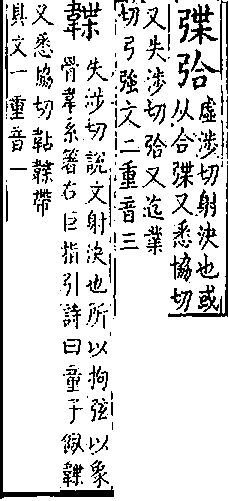 弽㢵虛涉切射決也或
从合弽又悉協切
又失涉切㢵又迄業
切弓強文二重音三
韘失涉切說文射決也所以拘弦以象
骨韋系著右巨指引詩曰童子佩韘
又悉協切䩞韘帶
具文一重音一